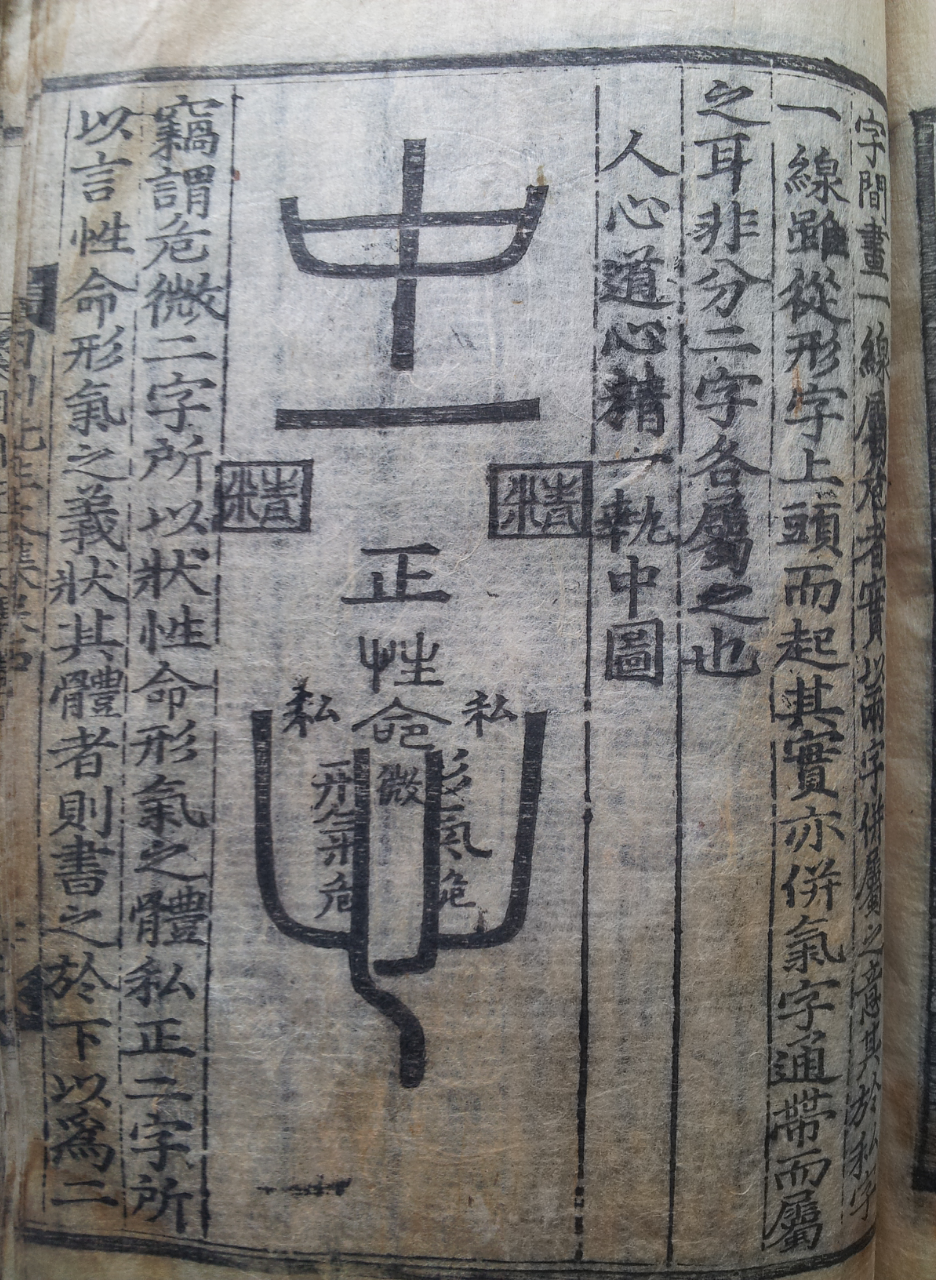 字間畫一線屬危者實以兩字併屬之意其於私字
一線雖從形字上頭而起其實亦併氣字通帶而屬
之耳非分二字各屬之也
人心道心精一執中圖
中
一
精
精
正
性
命
私
私
微
形氣危
形氣危
竊謂危微二字所以狀性命形氣之體私正二字所
以言性命形氣之義狀其體者則書之於下以爲二